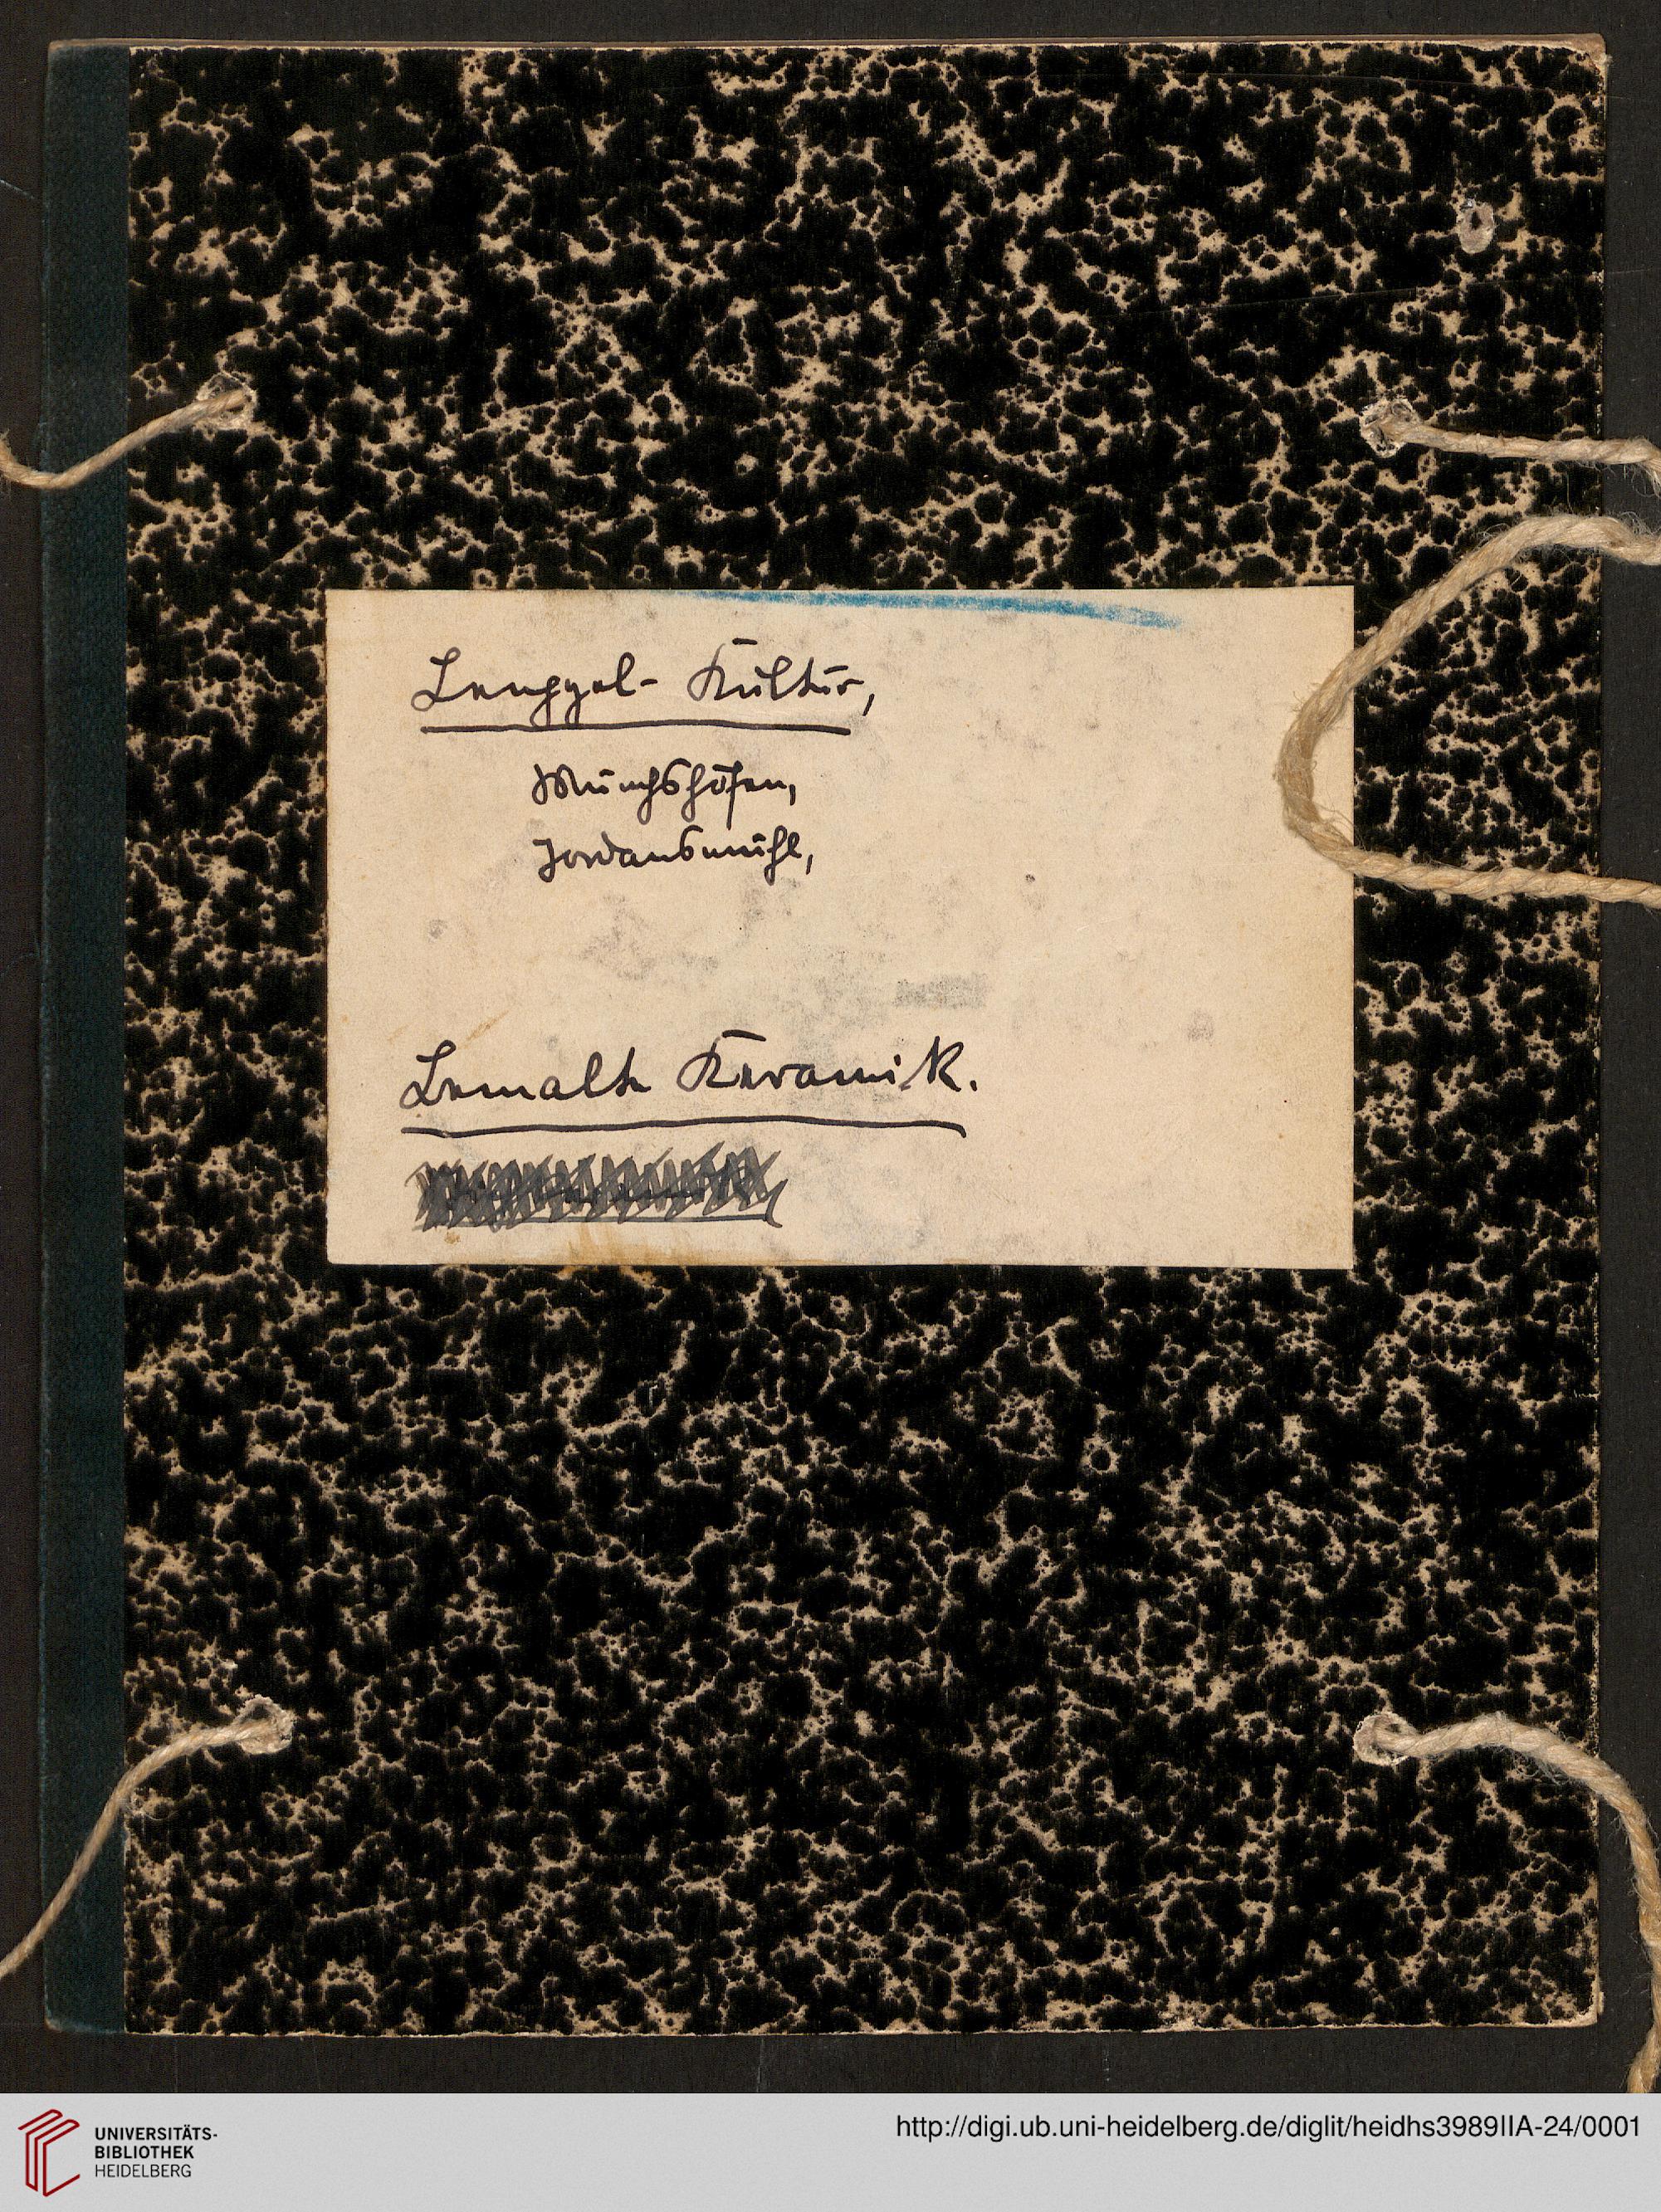 Lengyel- Kultur,
Münchshöfen,
Jordansmühl,
Bemalte Keramik.
UNIVERSITÄTS-
BIBLIOTHEK
HEIDELBERG
http://digi.ub.uni-heidelberg.de/diglit/heidhs3989IIA-24/0001